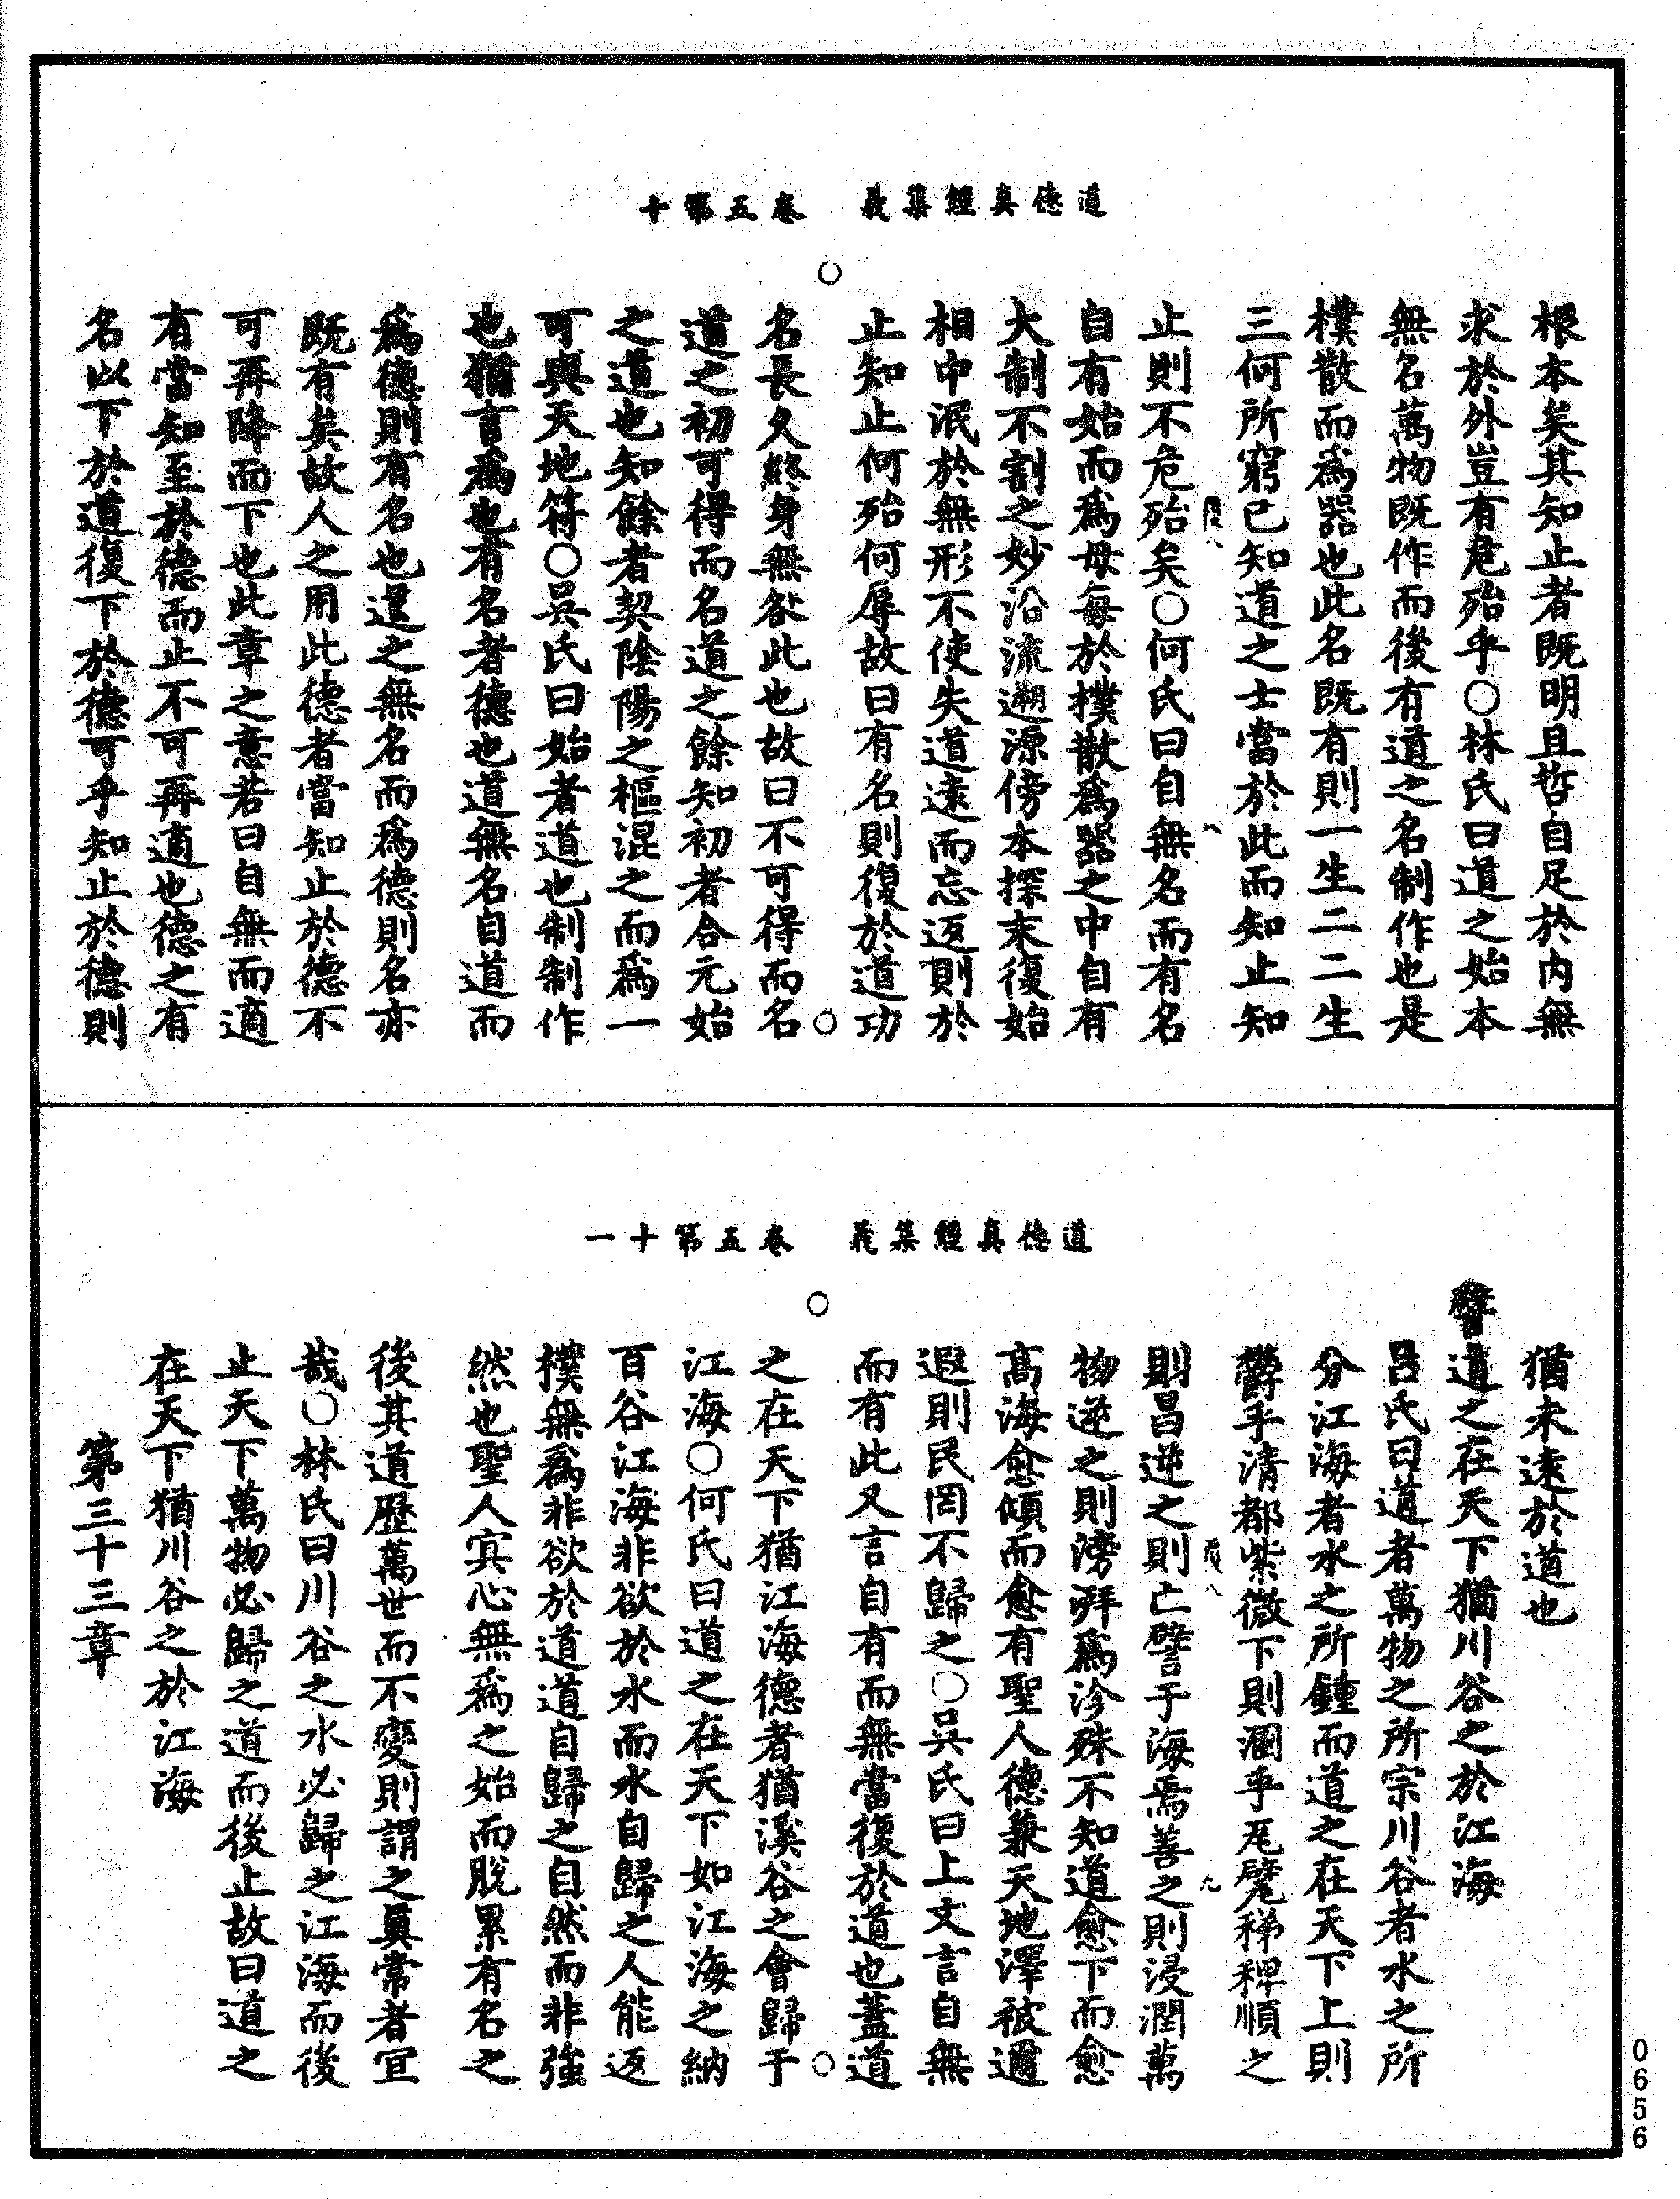 道德真經集義　卷五第十
根本矣其知止者既明且哲自足於內無
求於外豈有危殆乎○林氏曰道之始本
無名萬物既作而後有道之名制作也是
樸散而為器也此名既有則一生二二生
三何所窮已知道之士當於此而知止知
止則不危殆矣○何氏曰自無名而有名
自有始而為母每於樸散為器之中自有
大制不割之妙沿流遡源傍本探末復始
相中泯於無形不使失道遠而忘返則於
止知止何殆何辱故曰有名則復於道功
名長久終身無咎此也故曰不可得而名
道之初可得而名道之餘知初者合元始
之道也知餘者契陰陽之樞混之而為一
可與天地符○吳氏曰始者道也制制作
也猶言為也有名者德也道無名自道而
為德則有名也還之無名而為德則名亦
既有矣故人之用此德者當知止於德不
可再降而下也此章之意若曰自無而適
有當知至於德而止不可再適也德之有
名以下於道復下於德可乎知止於德則
道德真經集義　卷五第十一
猶未遠於道也
譬道之在天下猶川谷之於江海
呂氏曰道者萬物之所宗川谷者水之所
分江海者水之所鍾而道之在天下上則
欝乎清都紫微下則溷乎𤬪甓稊稗順之
則昌逆之則亡譬于海焉善之則浸潤萬
物逆之則滂湃為沴殊不知道愈下而愈
高海愈傾而愈有聖人德兼天地澤被邇
遐則民罔不歸之○吳氏曰上文言自無
而有此又言自有而無當復於道也蓋道
之在天下猶江海德者猶溪谷之會歸于
江海○何氏曰道之在天下如江海之納
百谷江海非欲於水而水自歸之人能返
樸無為非欲於道道自歸之自然而非強
然也聖人㝠心無為之始而脫累有名之
後其道歷萬世而不變則謂之真常者宜
哉○林氏曰川谷之水必歸之江海而後
止天下萬物必歸之道而後止故曰道之
在天下猶川谷之於江海
第三十三章
0656